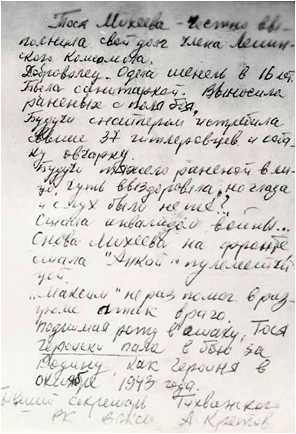 Тося Михеева - честно вы-
полнила свой долг члена Ленин-
ского Комсомола.
Доброволец. Одела шинель в 16 лет.
Была санитаркой. Выносила
раненых с поля боя.
Будучи снайпером истребила
свыше 37 гитлеровцев и соба-
ку овчарку.
Будучи тяжело раненой в ли-
це, чуть выздоровела, но глаза
и слух были не те!?
Стала инвалидом войны...
Снова Михеева на фронте
стала "Анкой" - пулеметчи
цей.
"Максим" не раз помог в раз-
громе атак врага.
Поднимая роту в атаку, Тося
геройски пала в бою за
Родину, как героиня в
октябре 1943 года.
Бывший секретарь Тихвинского
РК ВЛКСМ А